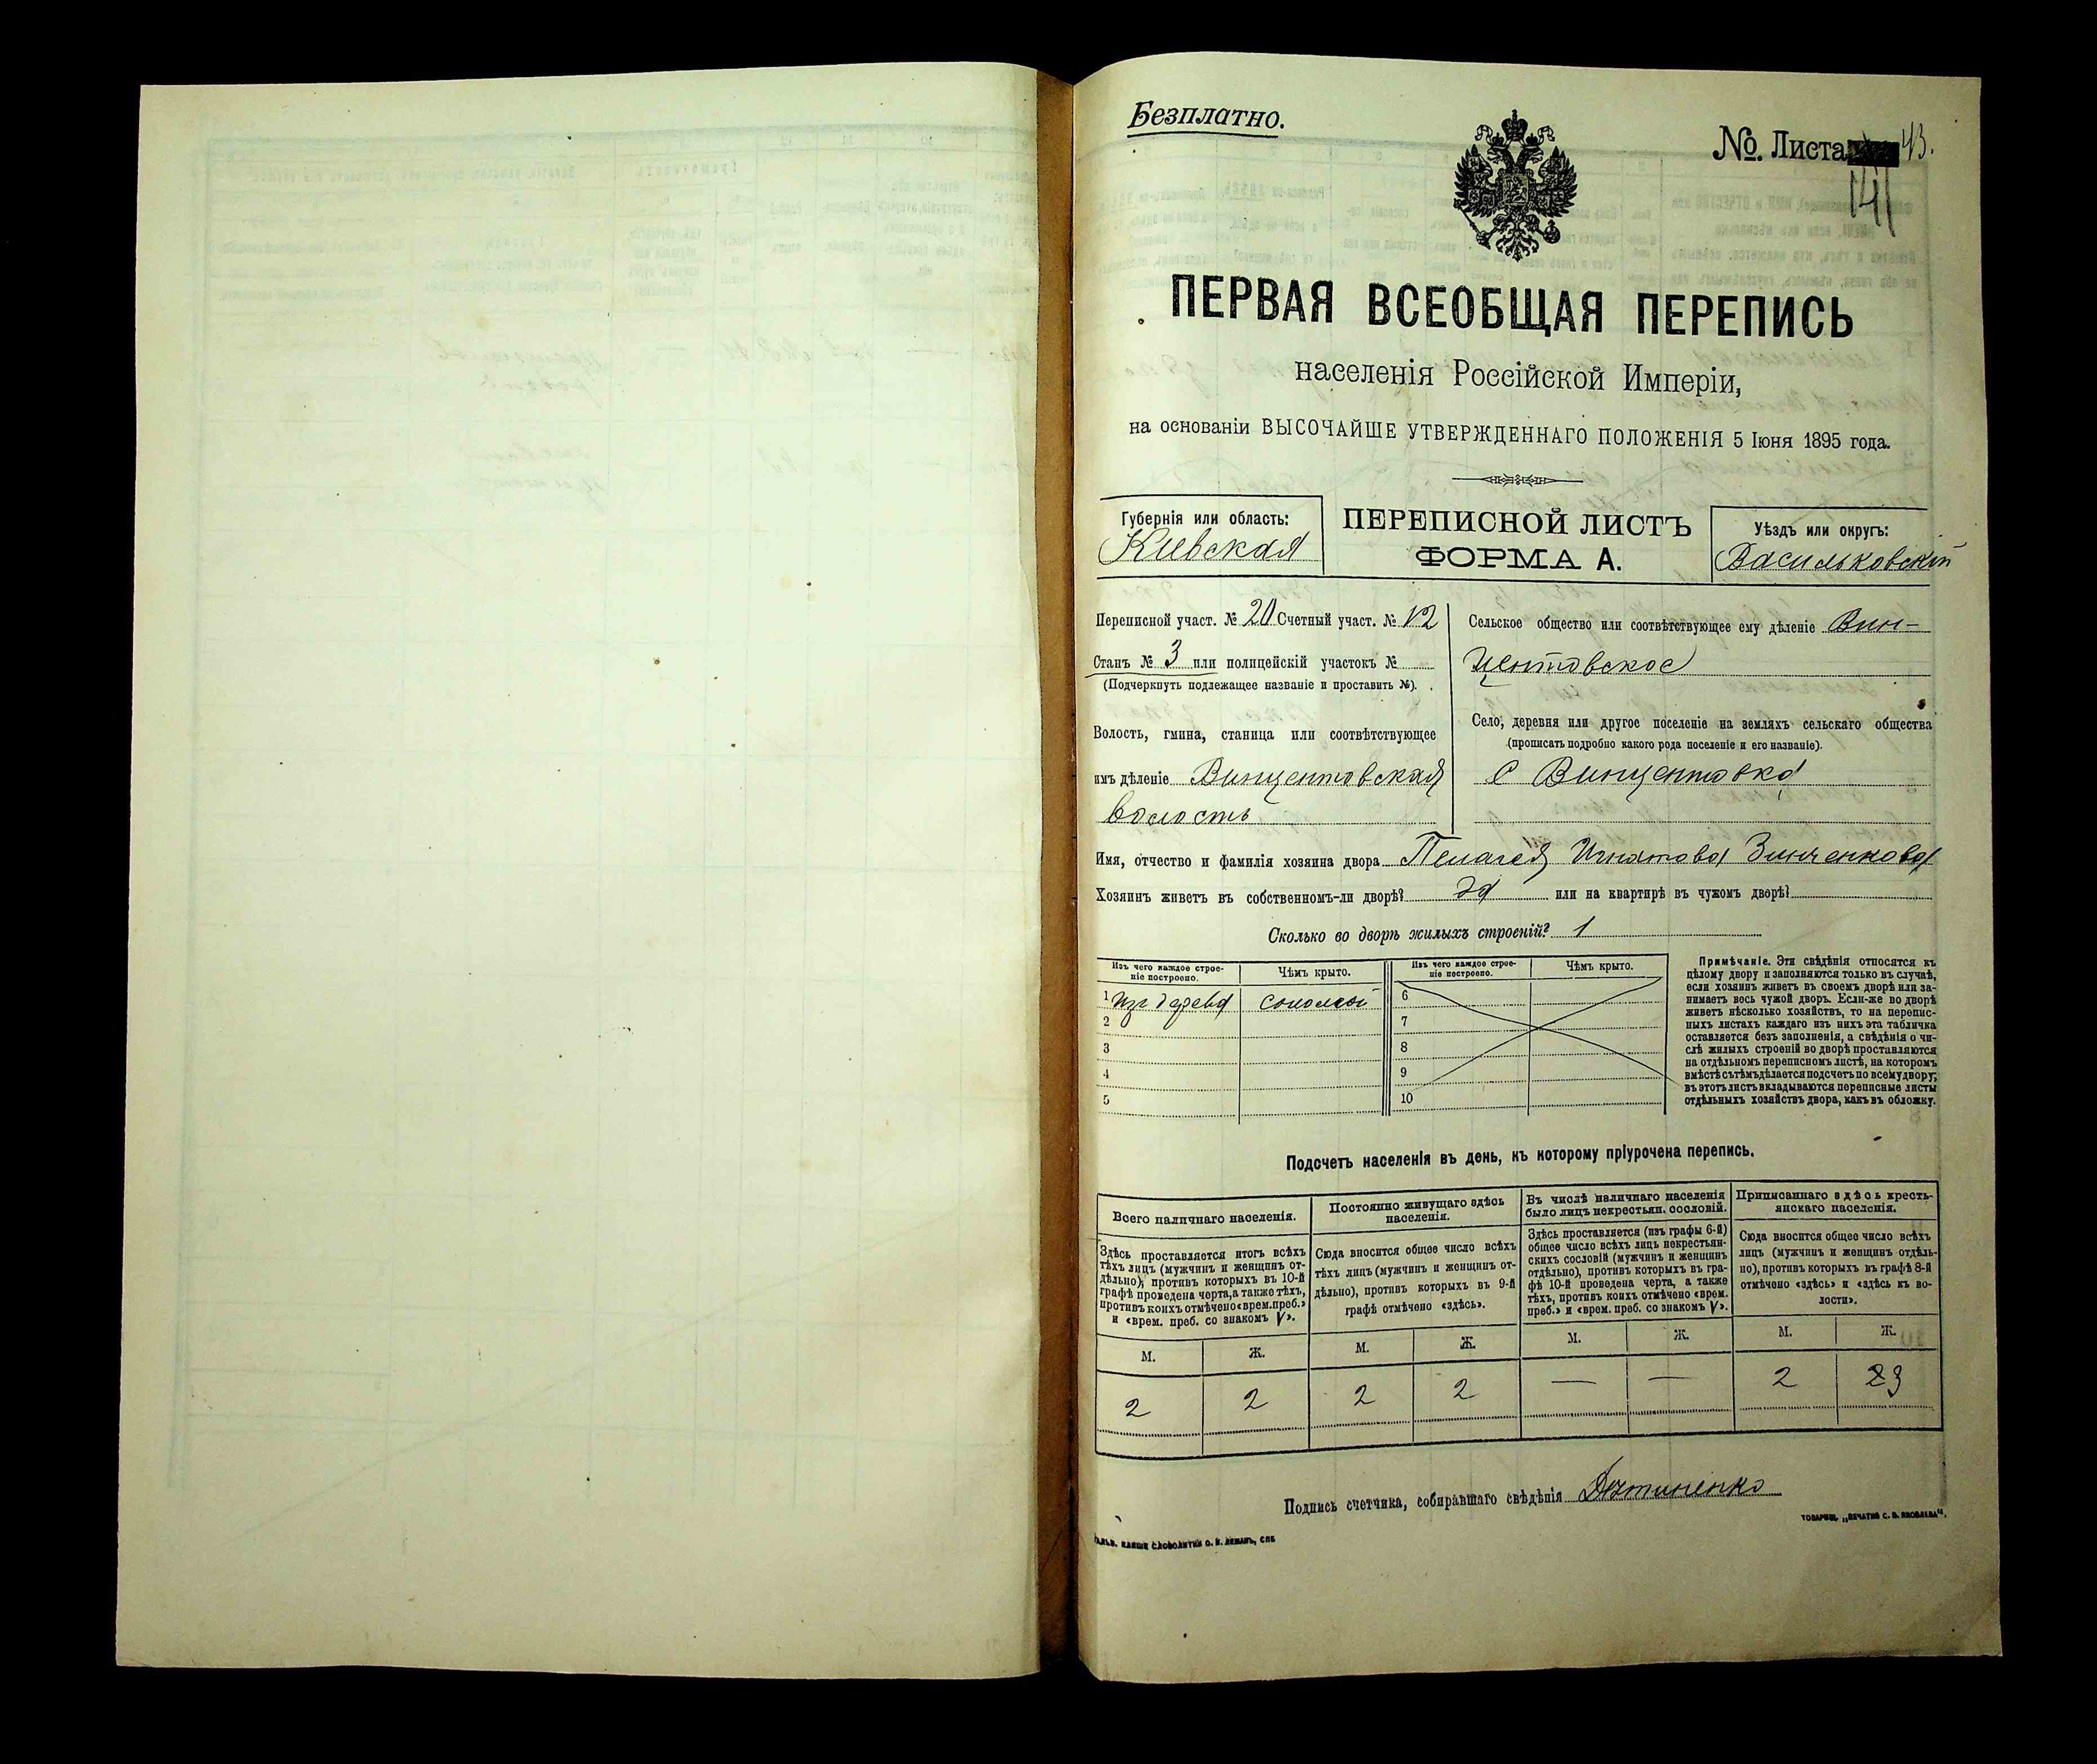 Безплатно.
№. Листа 43.
141
ПЕРВАЯ ВСЕОБЩАЯ ПЕРЕПИСЬ
населенія Россійской Имперіи,
на основаніи ВЫСОЧАЙШЕ УТВЕРЖДЕННАГО ПОЛОЖЕНІЯ 5 Іюня 1895 года.
Губернія или область:
Кіевская
ПЕРЕПИСНОЙ ЛИСТЪ
ФОРМА А.
Уѣздъ или округъ:
Васильковскій
Переписной участ. № 20 Счетный участ. № 12
Станъ № 3 или полицейскій участокъ №
(Подчеркнуть подлежащее названіе и проставить №).
Волость, гмина, станица или соотвѣтствующее
имъ дѣленіе Винцентовская
волость
Сельское общество или соотвѣтствующее ему дѣленіе Вин-
центовское
Село, деревня или другое поселеніе на земляхъ сельскаго общества
(прописать подробно какого рода поселеніе и его названіе).
с Винцентовка
Имя, отчество и фамилія хозяина двора Пелагея Игнатова Зинченкова
Хозяинъ живетъ въ собственномъ-ли дворѣ? да или на квартирѣ въ чужомъ дворѣ?
Сколько во дворѣ жилыхъ строеній? 1
Изъ чего каждое строе-
ніе построено.
Чѣмъ крыто.
1 изъ дерева соломой
2
3
4
5
Изъ чего каждое строе-
ніе построено.
Чѣмъ крыто.
6
7
8
9
10
Примѣчаніе. Эти свѣдѣнія относятся къ
цѣлому двору и заполняются только въ случаѣ,
если хозяинъ живетъ въ своемъ дворѣ или за-
нимаетъ весь чужой дворъ. Если-же во дворѣ
живетъ нѣсколько хозяйствъ, то на перепис-
ныхъ листахъ каждаго изъ нихъ эта табличка
оставляется безъ заполненія, а свѣдѣнія о чи-
слѣ жилыхъ строеній во дворѣ проставляются
на отдѣльномъ переписномъ листѣ, на которомъ
вмѣстѣ съ тѣмъ дѣлается подсчетъ по всему двору;
въ этотъ листъ вкладываются переписные листы
отдѣльныхъ хозяйствъ двора, какъ въ обложку.
Подсчетъ населенія въ день, къ которому пріурочена перепись.
Всего наличнаго населенія.
Здѣсь проставляется итогъ всѣхъ
тѣхъ лицъ (мужчинъ и женщинъ от-
дѣльно), противъ которыхъ въ 10-й
графѣ проведена черта, а также тѣхъ,
противъ коихъ отмѣчено «врем. преб.»
и «врем. преб. со знакомъ V».
М. Ж.
2 2
Постоянно живущаго здѣсь
населенія.
Сюда вносится общее число всѣхъ
тѣхъ лицъ (мужчинъ и женщинъ от-
дѣльно), противъ которыхъ въ 9-й
графѣ отмѣчено «здѣсь».
М. Ж.
2 2
Въ числѣ наличнаго населенія
было лицъ некрестьян. сословій.
Здѣсь проставляется (изъ графы 6-й)
общее число всѣхъ лицъ некрестьян-
скихъ сословій (мужчинъ и женщинъ
отдѣльно), противъ которыхъ въ гра-
фѣ 10-й проведена черта, а также
тѣхъ, противъ коихъ отмѣчено «врем.
преб.» и «врем. преб. со знакомъ V».
М. Ж.
— —
Приписаннаго здѣсь кресть-
янскаго населенія.
Сюда вносится общее число всѣхъ
лицъ (мужчинъ и женщинъ отдѣль-
но), противъ которыхъ въ графѣ 8-й
отмѣчено «здѣсь» и «здѣсь къ во-
лости».
М. Ж.
2 23
Подпись счетчика, собиравшаго свѣдѣнія
ТОВАРИЩ. „ПЕЧАТНЯ С. П. ЯКОВЛЕВА“.
СЛОВОЛИТНИ О. И. ЛЕМАНЪ, СПБ